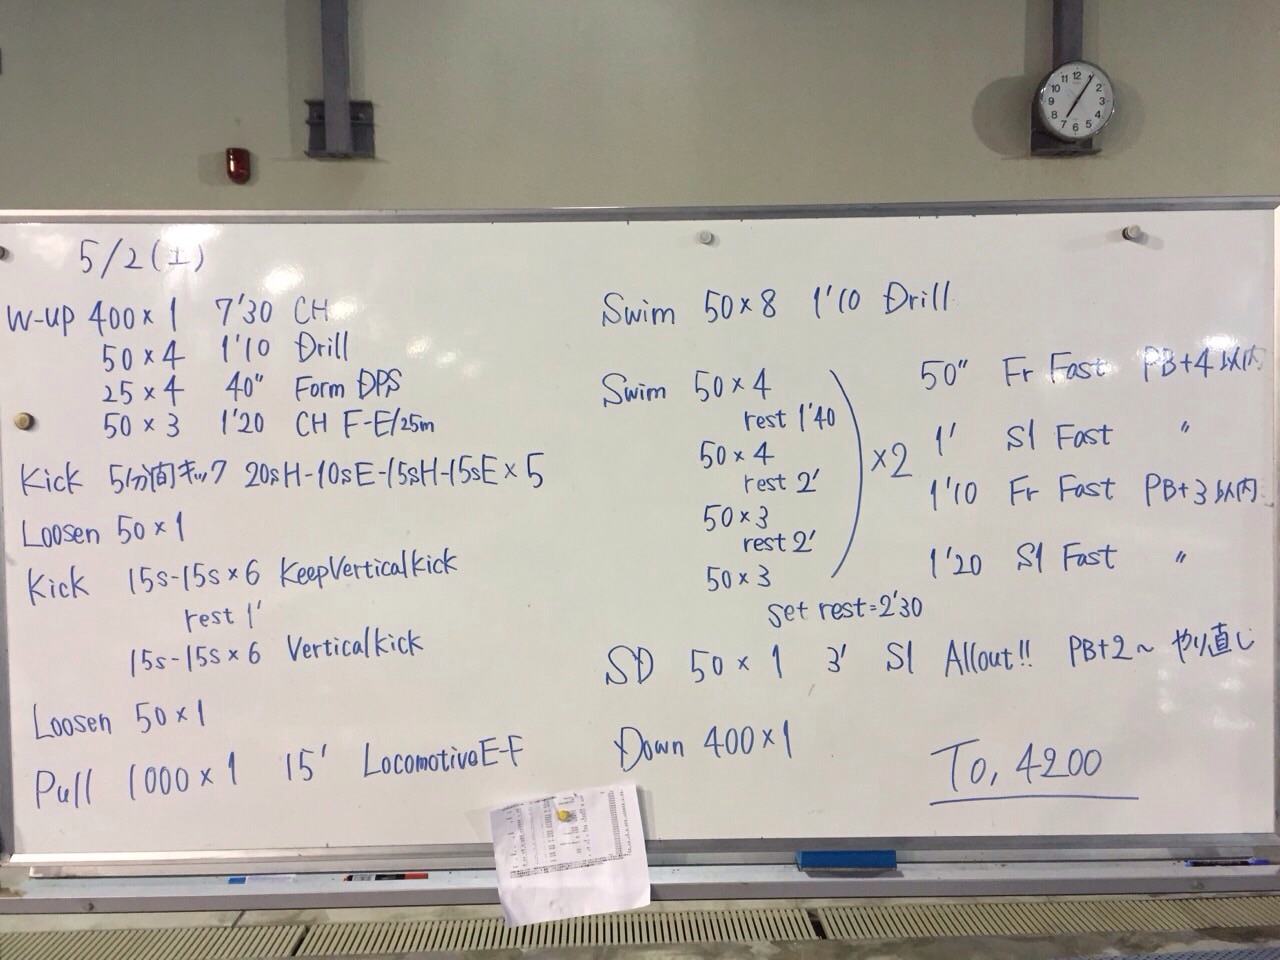 5/2(土)
W-up 400×1 7'30 CH
50×4 1'10 Drill
25×4 40" Form DPS
50×3 1'20 CH F-E/25m
Kick 5分間キック 20sH-10sE-15sH-15sE×5
Loosen 50×1
Kick 15s-15s×6 KeepVerticalkick
rest 1'
15s-15s×6 Verticalkick
Loosen 50×1
Pull 1000×1 15' LocomotiveE-F
Swim 50×8 1'10 Drill
Swim 50×4 50" Fr Fast PB+4以内
rest 1'40
50×4 1' S1 Fast 〃
rest 2'
×2
50×3 1'10 Fr Fast PB+3以内
rest 2'
50×3 1'20 S1 Fast 〃
set rest=2'30
SD 50×1 3' S1 Allout!! PB+2~ やり直し
Down 400×1
To, 4200
12
1
2
3
4
5
6
7
8
9
10
11